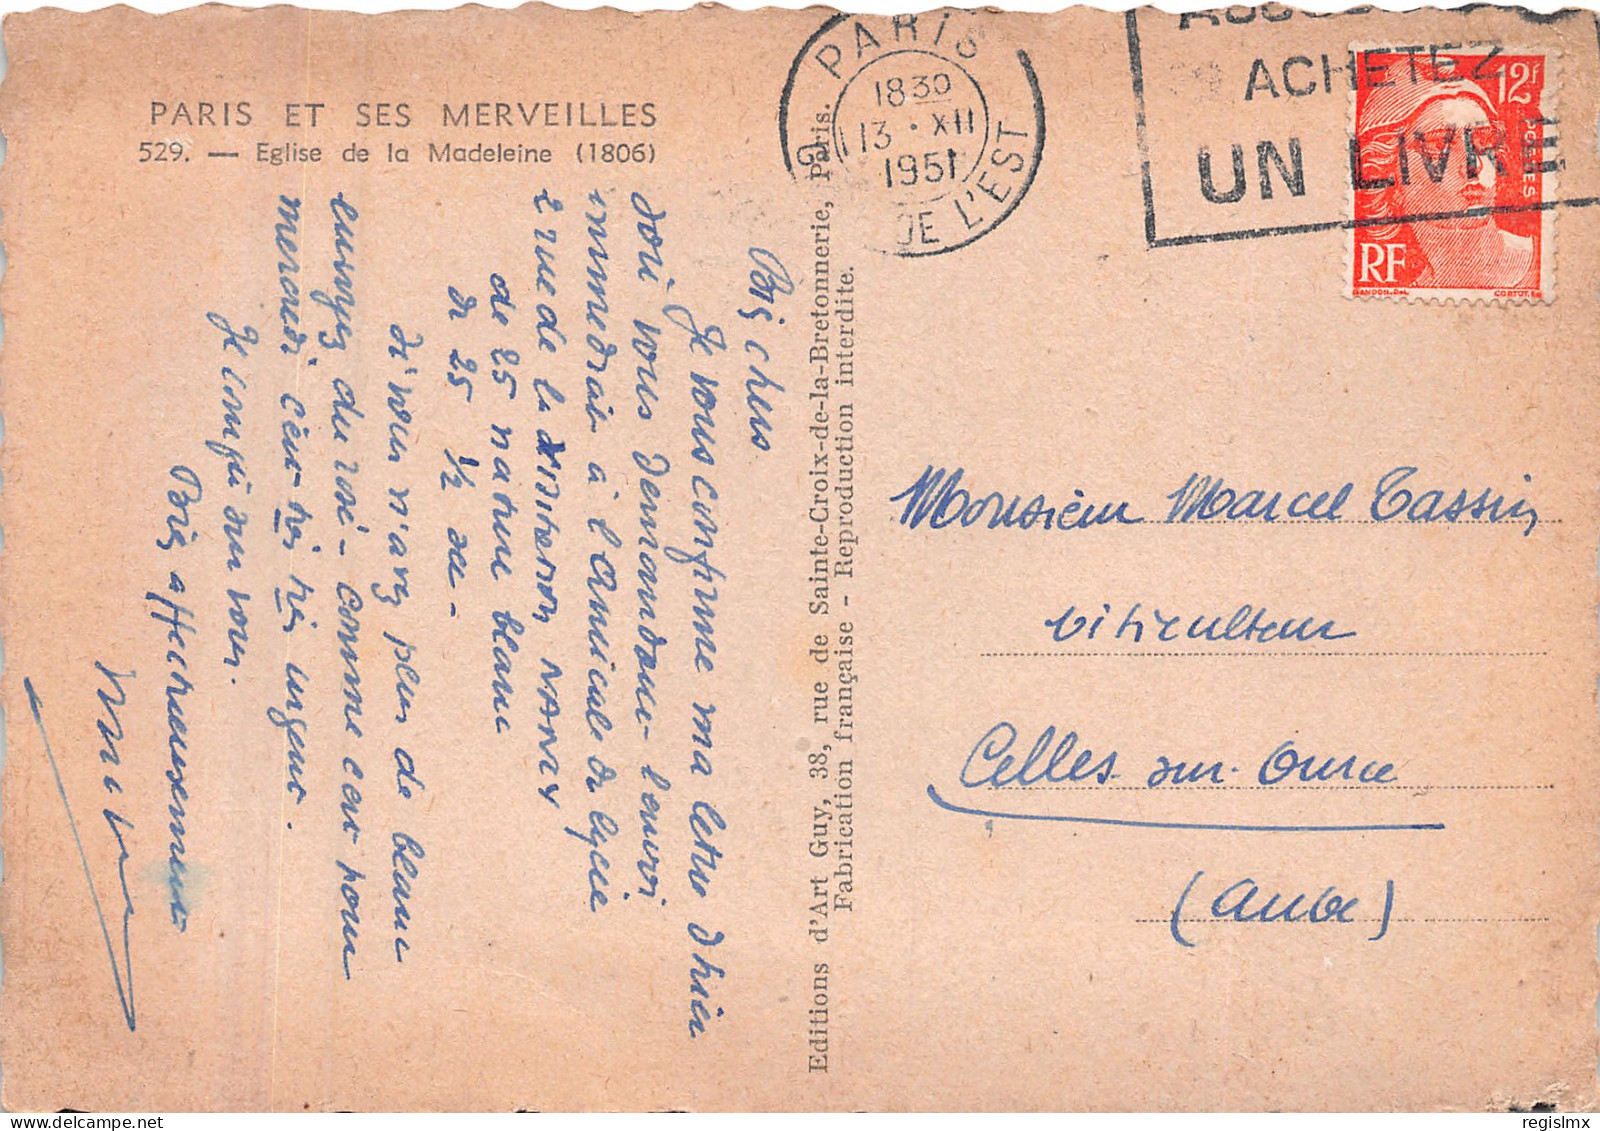 PARIS ET SES MERVEILLES
529. — Eglise de la Madeleine (1806)
Bois chers
Je vous confirme ma lettre d'hier
doù vous demandant l'envoi
immédiat à l'Amicale du lycée
2 rue de la Visitation NANCY
de 25 nature blanc
de 25 1/2 sec -
Si vous n'avez plus de blanc
envoyez du rosé - comme ca pour
mercredi c'est très très urgent.
Je compte sur vous.
affectueusement
Editions d'Art Guy, 38, rue de Sainte-Croix-de-la-Bretonnerie, Paris.
Fabrication française - Reproduction interdite.
PARIS
1830
13 · XII
1951
DE L'EST
ACHETEZ
UN LIVRE
12F
POSTES
RF
GANDON.Del.
CORTOT.
Monsieur Marcel Tassin
viticulteur
Celles-sur-Ource
(Aube)
regislmx